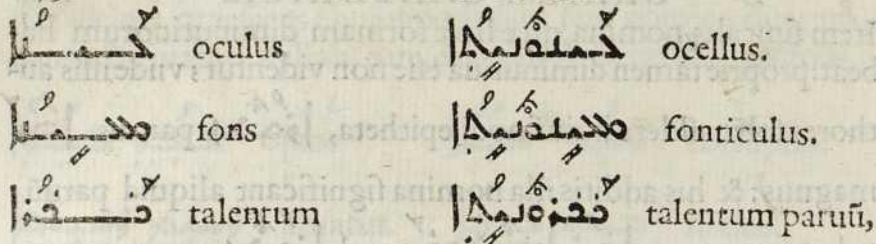 ܥܰܝܢܳܐ oculus ܥܰܝܢܽܘܢܺܝܬܳܐ ocellus.
ܡܥܺܝܢܳܐ fons ܡܥܺܝܢܽܘܢܺܝܬܳܐ fonticulus.
ܟܰܟܪܳܐ talentum ܟܰܟܪܽܘܢܺܝܬܳܐ talentum paruũ,